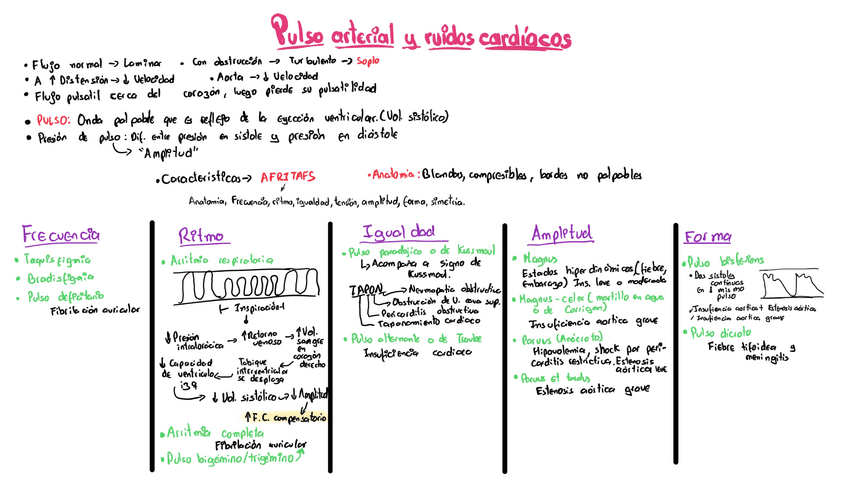 Pulso arterial y ruidos cardíacos
• Flujo normal → Laminar • Con obstrucción → Turbulento → Soplo
• A ↑ Distensión → ↓ Velocidad • Aorta → ↓ Velocidad
• Flujo pulsatil cerca del corazón, luego pierde su pulsatilidad
• PULSO: Onda palpable que es reflejo de la eyección ventricular. (Vol. sistólico)
• Presión de pulso: Dif. entre presión en sistole y presión en diástole
↳ "Amplitud"
• Características → AFRITAFS
• Anatomía: Blandas, compresibles, bordes no palpables
Anatomía, Frecuencia, ritmo, igualdad, tensión, amplitud, forma, simetría.
Frecuencia
• Taquisfigmia
• Bradisfigmia
• Pulso deficitario
Fibrilación auricular
Ritmo
• Arritmia respiratoria
Inspiración
↓ Presión intratorácica → ↑ Retorno venoso → ↑ Vol. sangre en corazón derecho
Tabique interventricular se desplaza
↓ Capacidad de ventrículo izq
↓ Vol. sistólico → ↓ Amplitud
↑ F.C. compensatorio
• Arritmia completa
Fibrilación auricular
• Pulso bigémino/trigémino
Igualdad
• Pulso paradójico o de Kussmaul
↳ Acompaña a signo de
Kussmaul.
TAPON
Neumopatía obstructiva
Obstrucción de V. cava sup.
Pericarditis obstructiva
Taponamiento cardíaco
• Pulso alternante o de Traube
Insuficiencia cardíaca
Amplitud
• Magnus
Estados hiperdinámicos (fiebre,
embarazo) Ins. leve o moderada
• Magnus-celer (martillo en agua
o de Corrigan)
Insuficiencia aórtica grave
• Parvus (Anácroto)
Hipovolemia, shock por peri-
carditis restrictiva. Estenosis
aórtica leve
• Parvus et tardus
Estenosis aórtica grave
Forma
• Pulso bisferiens
• Dos sístoles
continuas
en 1 mismo
pulso
Insuficiencia aortica + Estenosis aórtica
Insuficiencia aórtica grave
• Pulso dicroto
Fiebre tifoidea y
meningitis